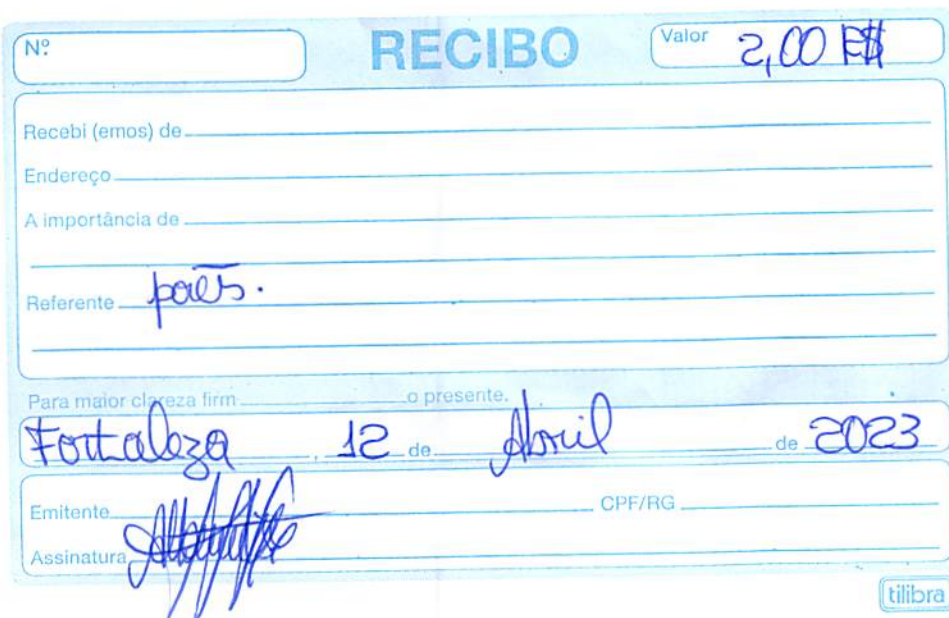 Nº RECIBO Valor 2,00 R$
Recebi (emos) de
Endereço
A importância de
Referente pães.
Para maior clareza firm o presente.
Fortaleza, 12 de Abril de 2023
Emitente CPF/RG
Assinatura
tilibra